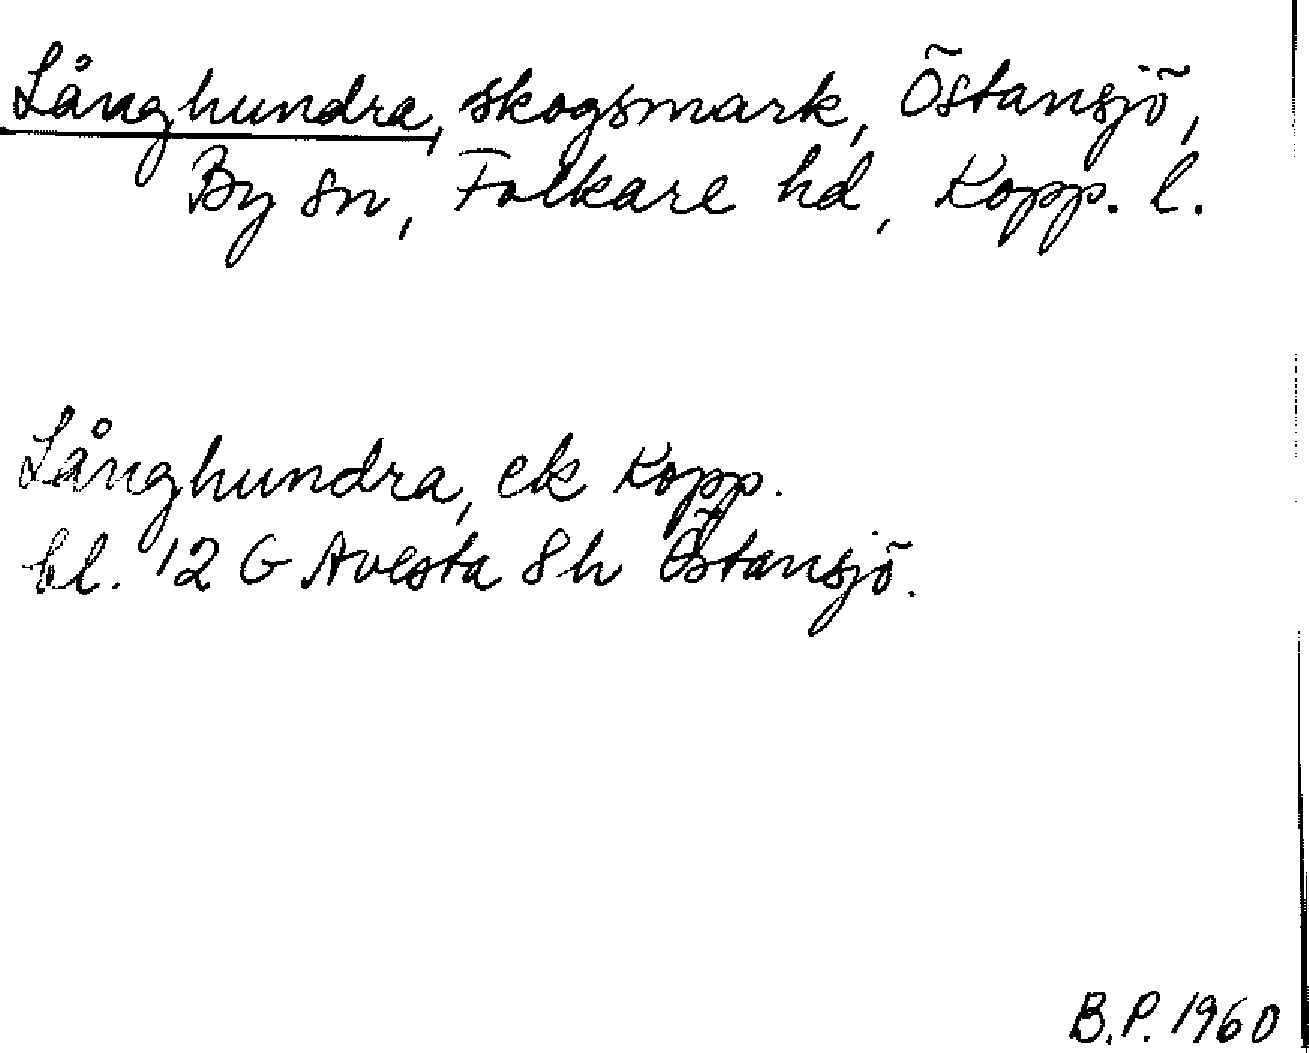 Långhundra, skogsmark, Östansjö,
By sn, Folkare hd, Kopp. l.
Långhundra, ek Kopp.
bl. 12 G Avesta 8h Östansjö.
B.P. 1960